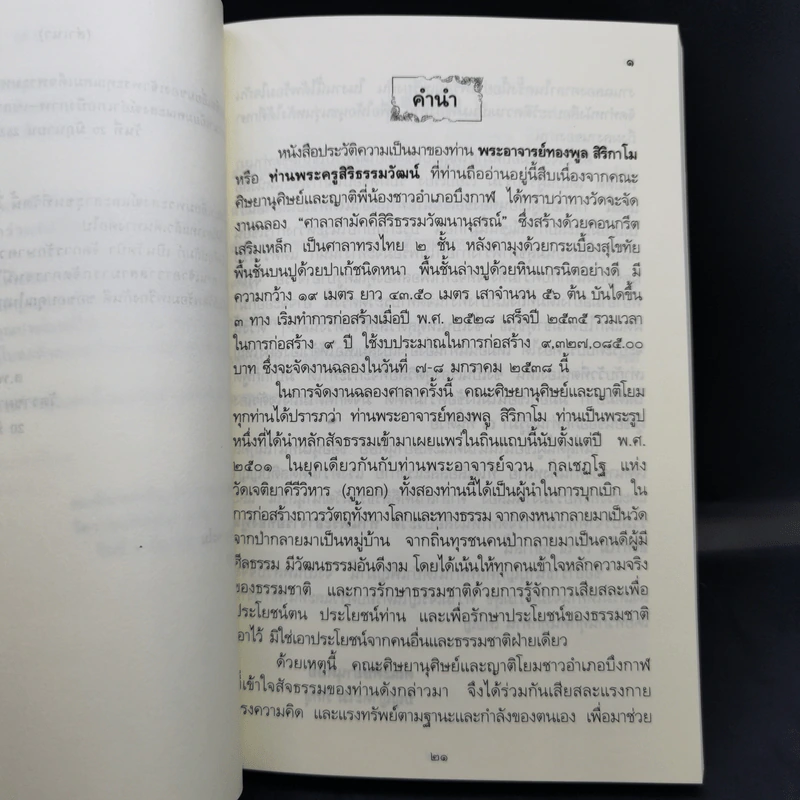 ๑
คำนำ
หนังสือประวัติความเป็นมาของท่าน พระอาจารย์ทองพูล สิริกาโม
หรือ ท่านพระครูสิริธรรมวัฒน์ ที่ท่านถืออ่านอยู่นี้สืบเนื่องจากคณะ
ศิษยานุศิษย์และญาติพี่น้องชาวอำเภอบึงกาฬ ได้ทราบว่าทางวัดจะจัด
งานฉลอง “ศาลาสามัคคีสิริธรรมวัฒนานุสรณ์” ซึ่งสร้างด้วยคอนกรีต
เสริมเหล็ก เป็นศาลาทรงไทย ๒ ชั้น หลังคามุงด้วยกระเบื้องสุโขทัย
พื้นชั้นบนปูด้วยปาเก้ชนิดหนา พื้นชั้นล่างปูด้วยหินแกรนิตอย่างดี มี
ความกว้าง ๑๙ เมตร ยาว ๔๓.๕๐ เมตร เสาจำนวน ๕๖ ต้น บันไดขึ้น
๓ ทาง เริ่มทำการก่อสร้างเมื่อปี พ.ศ. ๒๕๒๘ เสร็จปี ๒๕๓๕ รวมเวลา
ในการก่อสร้าง ๙ ปี ใช้งบประมาณในการก่อสร้าง ๙,๓๒๗,๐๘๕.๐๐
บาท ซึ่งจะจัดงานฉลองในวันที่ ๗-๘ มกราคม ๒๕๓๘ นี้
ในการจัดงานฉลองศาลาครั้งนี้ คณะศิษยานุศิษย์และญาติโยม
ทุกท่านได้ปรารภว่า ท่านพระอาจารย์ทองพลู สิริกาโม ท่านเป็นพระรูป
หนึ่งที่ได้นำหลักสัจธรรมเข้ามาเผยแพร่ในถิ่นแถบนี้นับตั้งแต่ปี พ.ศ.
๒๕๐๑ ในยุคเดียวกันกับท่านพระอาจารย์จวน กุลเชฏโฐ แห่ง
วัดเจติยาคีรีวิหาร (ภูทอก) ทั้งสองท่านนี้ได้เป็นผู้นำในการบุกเบิก ใน
การก่อสร้างถาวรวัตถุทั้งทางโลกและทางธรรม จากดงหนากลายมาเป็นวัด
จากป่ากลายมาเป็นหมู่บ้าน จากถิ่นทุรชนคนป่ากลายมาเป็นคนดีผู้มี
ศีลธรรม มีวัฒนธรรมอันดีงาม โดยได้เน้นให้ทุกคนเข้าใจหลักความจริง
ของธรรมชาติ และการรักษาธรรมชาติด้วยการรู้จักการเสียสละเพื่อ
ประโยชน์ตน ประโยชน์ท่าน และเพื่อรักษาประโยชน์ของธรรมชาติ
เอาไว้ มิใช่เอาประโยชน์จากคนอื่นและธรรมชาติฝ่ายเดียว
ด้วยเหตุนี้ คณะศิษยานุศิษย์และญาติโยมชาวอำเภอบึงกาฬ
ที่เข้าใจสัจธรรมของท่านดังกล่าวมา จึงได้ร่วมกันเสียสละแรงกาย
แรงความคิด และแรงทรัพย์ตามฐานะและกำลังของตนเอง เพื่อมาช่วย
๒๑